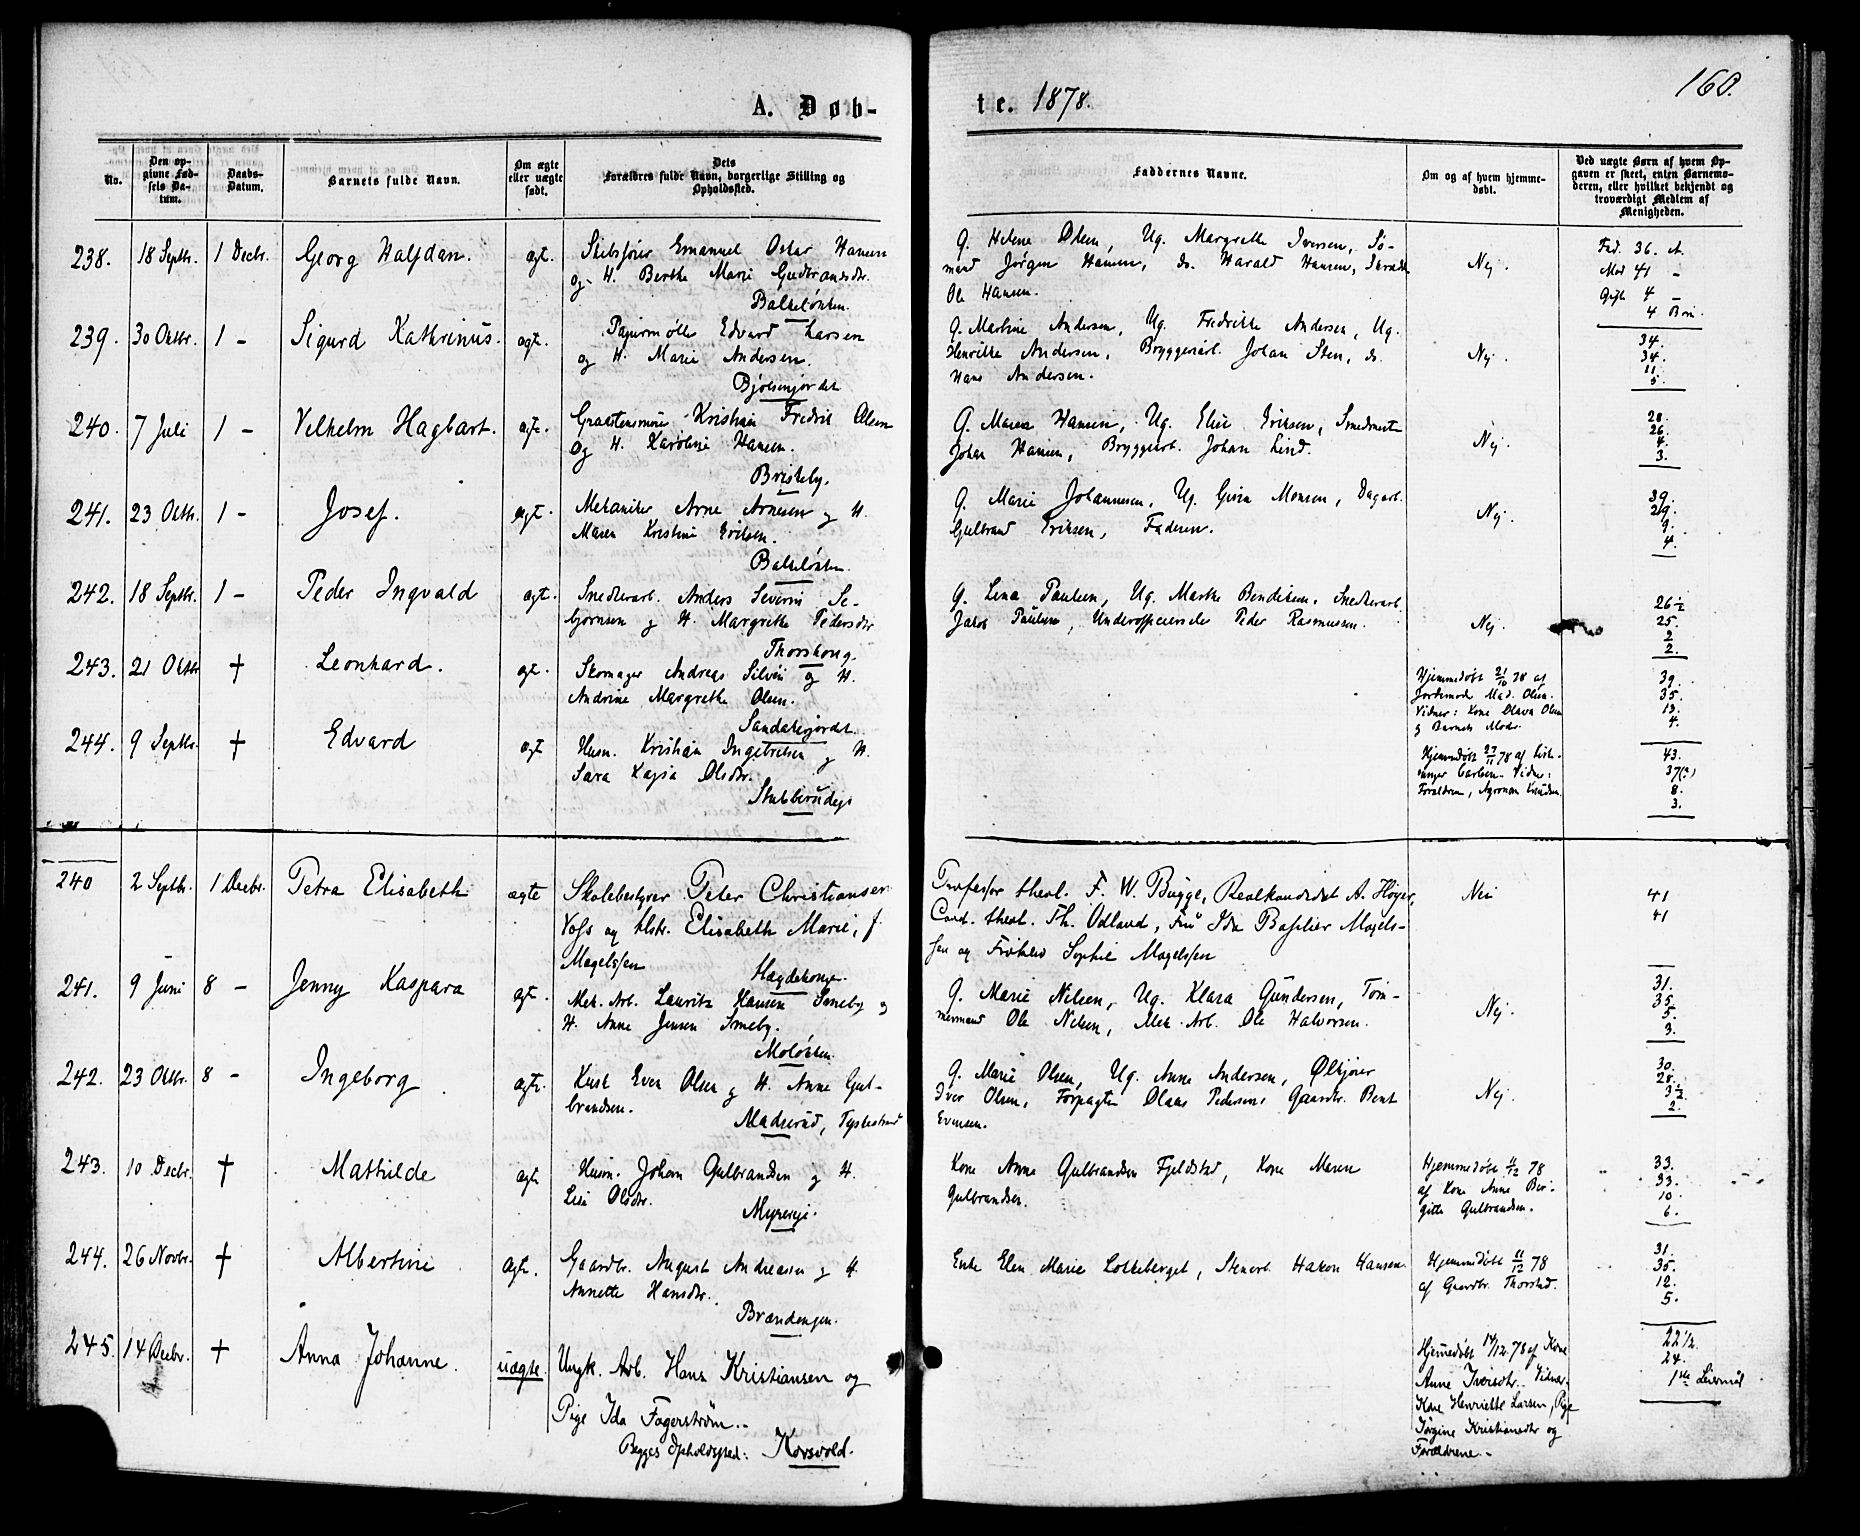 160.
A. Døb-
te. 1878.
No.
Den op-
givne Fød-
sels Da-
tum.
Daabs-
Datum.
Barnets fulde Navn.
Om ægte
eller uægte
født.
Dets
Forældres fulde Navn, borgerlige Stilling og
Opholdssted.
Faddernes Navne.
Om og af hvem hjemme-
døbt.
Ved uægte Børn af hvem Op-
gaven er skeet, enten Barnemo-
deren, eller hvilket bekjendt og
troværdigt Medlem af
Menigheden.
238. 18 Septbr. 1 Decbr. Georg Halfdan. ægt. Skibsfører Emanuel Oskar Hansen
og H. Berthe Marie Gudbrandsdr.
Balkeløkken.
G. Helene Olsen, Ug. Margrethe Iversen, Sø-
mand Jørgen Hansen, do. Harald Hansen,
Ole Hansen.
Nej.
Fad. 36.
Mod 41 -
Gift 4 -
4 Børn.
239. 30 Oktbr. 1 - Sigurd Kathrinus. ægt. Papirmølle Edvard Larsen
og H. Marie Andersen.
Bjølsenjordet
G. Martine Andersen, Ug. Fredrikke Andersen, Ug.
Henrikke Andersen, Bryggeriarb. Johan Sten, do.
Hans Andersen.
Nej.
34.
34.
11
5.
240. 7 Juli 1 - Vilhelm Hagbart. ægt. Graastensmurer Kristian Fredrik Olsen
og H. Karoline Hansen.
Briskeby.
G. Maren Hansen, Ug. Elise Eriksen, Smedmester
Johan Hansen, Bryggeriarb. Johan Lind.
Nej.
28.
26
4
3.
241. 23 Oktbr. 1 - Josef. ægt. Mekaniker Arne Arnesen og H.
Maren Kristine Eriksen.
Balkeløkken.
G. Marie Johannesen, Ug. Gina Monsen, Dagarb.
Gulbrand Eriksen, Faderen.
Nej.
39.
29.
9.
4.
242. 18 Septbr. 1 - Peder Ingvald ægt. Snedkerarb. Anders Severin Se-
bjørnsen og H. Margrethe Pedersdr
Thorshaug.
G. Lena Paulsen, Ug. Marthe Bendiksen, Snedkerarb.
Jakob Paulsen, Underofficierselev Peder Rasmussen.
Nej.
26 1/2
25.
2
2.
243. 21 Oktbr † Leonhard. ægt. Skomager Andreas Silvén og H.
Andrine Margrethe Olsen.
Sandakerjordet.
Hjemmedøbt 21/10 78 af
Jordemod. Mad. Olsen.
Vidner: Kone Olava Olsen
og Barnets Moder.
39.
35.
13.
4.
244. 9 Septbr. † Edvard ægt Husm. Kristian Ingebretsen og H.
Sara Kajsa Olsdr.
Stubberudejs
Hjemmedøbt 27/11 78 af
Carlsen. Vidner:
Forældrene, Agronom Knudsen.
43.
37(?)
8.
3.
240 2 Septbr. 1 Decbr. Petra Elisabeth ægte Skolebestyrer Peter Christiansen
Voss og Hstr. Elisabeth Marie, f.
Magelssen Hægdehougen.
Professor theol. F. W. Bugge, Realkandidat A. Høyer,
Cand. theol. Th. Odland, Frü Ida Basilier Magels-
sen og Frøken Sophie Magelssen
Nei
41
41
241. 9 Juni 8 - Jenny Kaspara ægt. Mek. Arb. Lauritz Hansen Smeby og
H. Anne Jensen Smeby.
Moløkken.
G. Marie Nilsen, Ug. Klara Gundersen, Tøm-
mermand Ole Nilsen, Mek. Arb. Ole Halvorsen.
Nej.
31.
35.
5.
3.
242. 23 Oktbr. 8 - Ingeborg ægt. Kusk Even Olsen og H. Anne Gul-
brandsen.
Madserud, Tyskestrand
G. Marie Olsen, Ug. Anne Andersen, Ølkjører
Iver Olsen, Forpagter Olaus Pedersen, Gaardbr. Bent
Evensen.
Nej.
30.
28.
3 1/2
2.
243. 10 Decbr. † Mathilde ægt. Husm. Johan Gulbrandsen og H.
Lise Olsdr.
Myrereje.
Kone Anne Gulbrandsen Fjeldstad, Kone Maren
Gulbrandsen.
Hjemmedøbt 11/12 78
af Kone Anne Bir-
gitte Gulbrandsen.
33.
33.
10
6.
244. 26 Novbr. † Albertine ægt. Gaardbr. August Andreassen og H.
Annette Hansdr.
Brændengen.
Enke Elen Marie Lokkeberget, Stenarb. Hakon Hansen.
Hjemmedøbt 11/12 78
af Gaardbr. Thorstad.
31.
35.
12.
5.
245. 14 Decbr. † Anna Johanne. uægte. Ungk. Arb. Hans Kristiansen og
Pige Ida Fagerstrøm.-
Begges Opholdssted: Korsvold.
Hjemmedøbt 14/12 78 af Kone
Anne Iversdtr. Vidner.
Kone Henriette Larsen, Pige
Jørgine Kristiansdtr og
Forældrene.-
22 1/2.
24.
1ste Leiermål